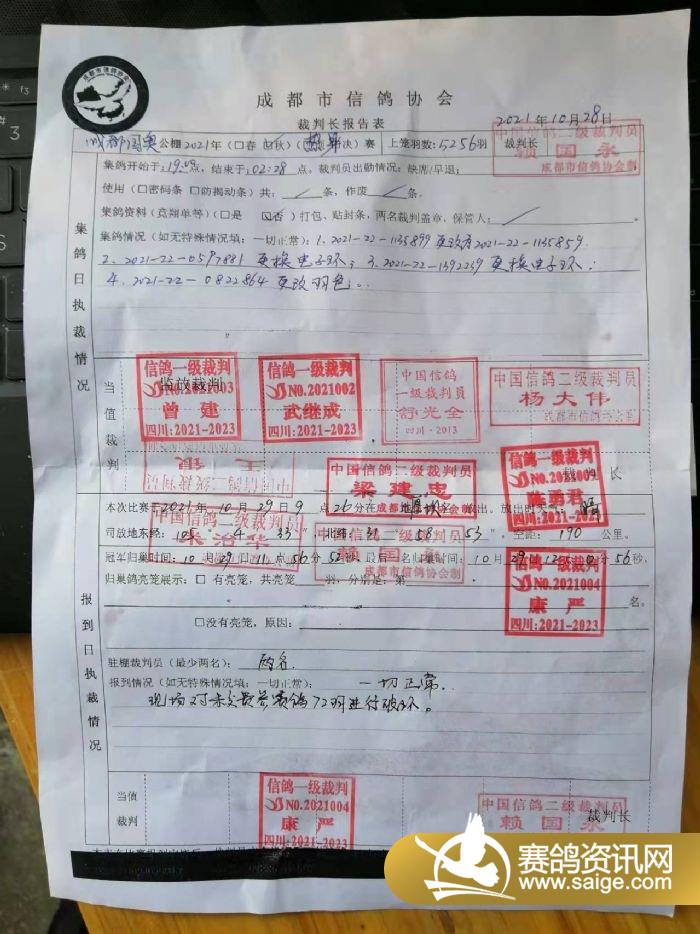 成都市信鸽协会
成都市信鸽协会
裁判长报告表
2021年10月28日
公棚2021年（口春 口秋）（ 决）赛 上笼羽数：5256羽 裁判长
中国信鸽二级裁判员
赖国永
成都市信鸽协会制
集鸽日执裁情况
集鸽开始于：19:09点，结束于：02:28点。裁判员出勤情况：缺席/早退：
使用（口密码条 口防揭动条）共： 条，作废 条。
集鸽资料（竟翔单等）（口是 口否）打包、贴封条，两名裁判盖章，保管人：
集鸽情况（如无特殊情况填：一切正常）：1.2021-22-1135899更改为2021-22-1135859.
2.2021-22-0597881更换电子环；3.2021-22-1392239更换电子环；
4.2021-22-0822864更改羽色。
当值裁判
监放裁判
信鸽一级裁判
曾建
四川：2021-2023
信鸽一级裁判
NO.2021002
武继成
四川：2021-2023
中国信鸽
一级裁判员
舒光全
四川·2013
中国信鸽二级裁判员
杨大伟
成都市信鸽协会制
中国信鸽二级裁判员
梁建忠
陈勇君
四川：2021-2023
裁判长
报到日执裁情况
本次比赛于2021年10月29日9点26分在 放出，放出时天气：晴
司放地东经：105°4′33″ 北纬：31°58′53″。空距：190公里。
中国信鸽二级裁判员
赖国永
成都市信鸽协会制
冠军归巢时间：10月29日11点56分52秒，最后一名归巢时间：10月29 12 0分56秒，
信鸽一级裁判
NO.2021004
康严
四川：2021-2023
归巢鸽亮笼展示：口 有亮笼，共亮笼 羽，分别是：第
名。
口没有亮笼，原因：
驻棚裁判员（最少两名）：两名
报到情况（如无特殊情况填：一切正常）：一切正常.
现场对未交费参赛鸽72羽进行破环。
当值裁判
信鸽一级裁判
NO.2021004
康严
四川：2021-2023
中国信鸽二级裁判员
赖国永
裁判长
赛鸽资讯网
www.saige.com